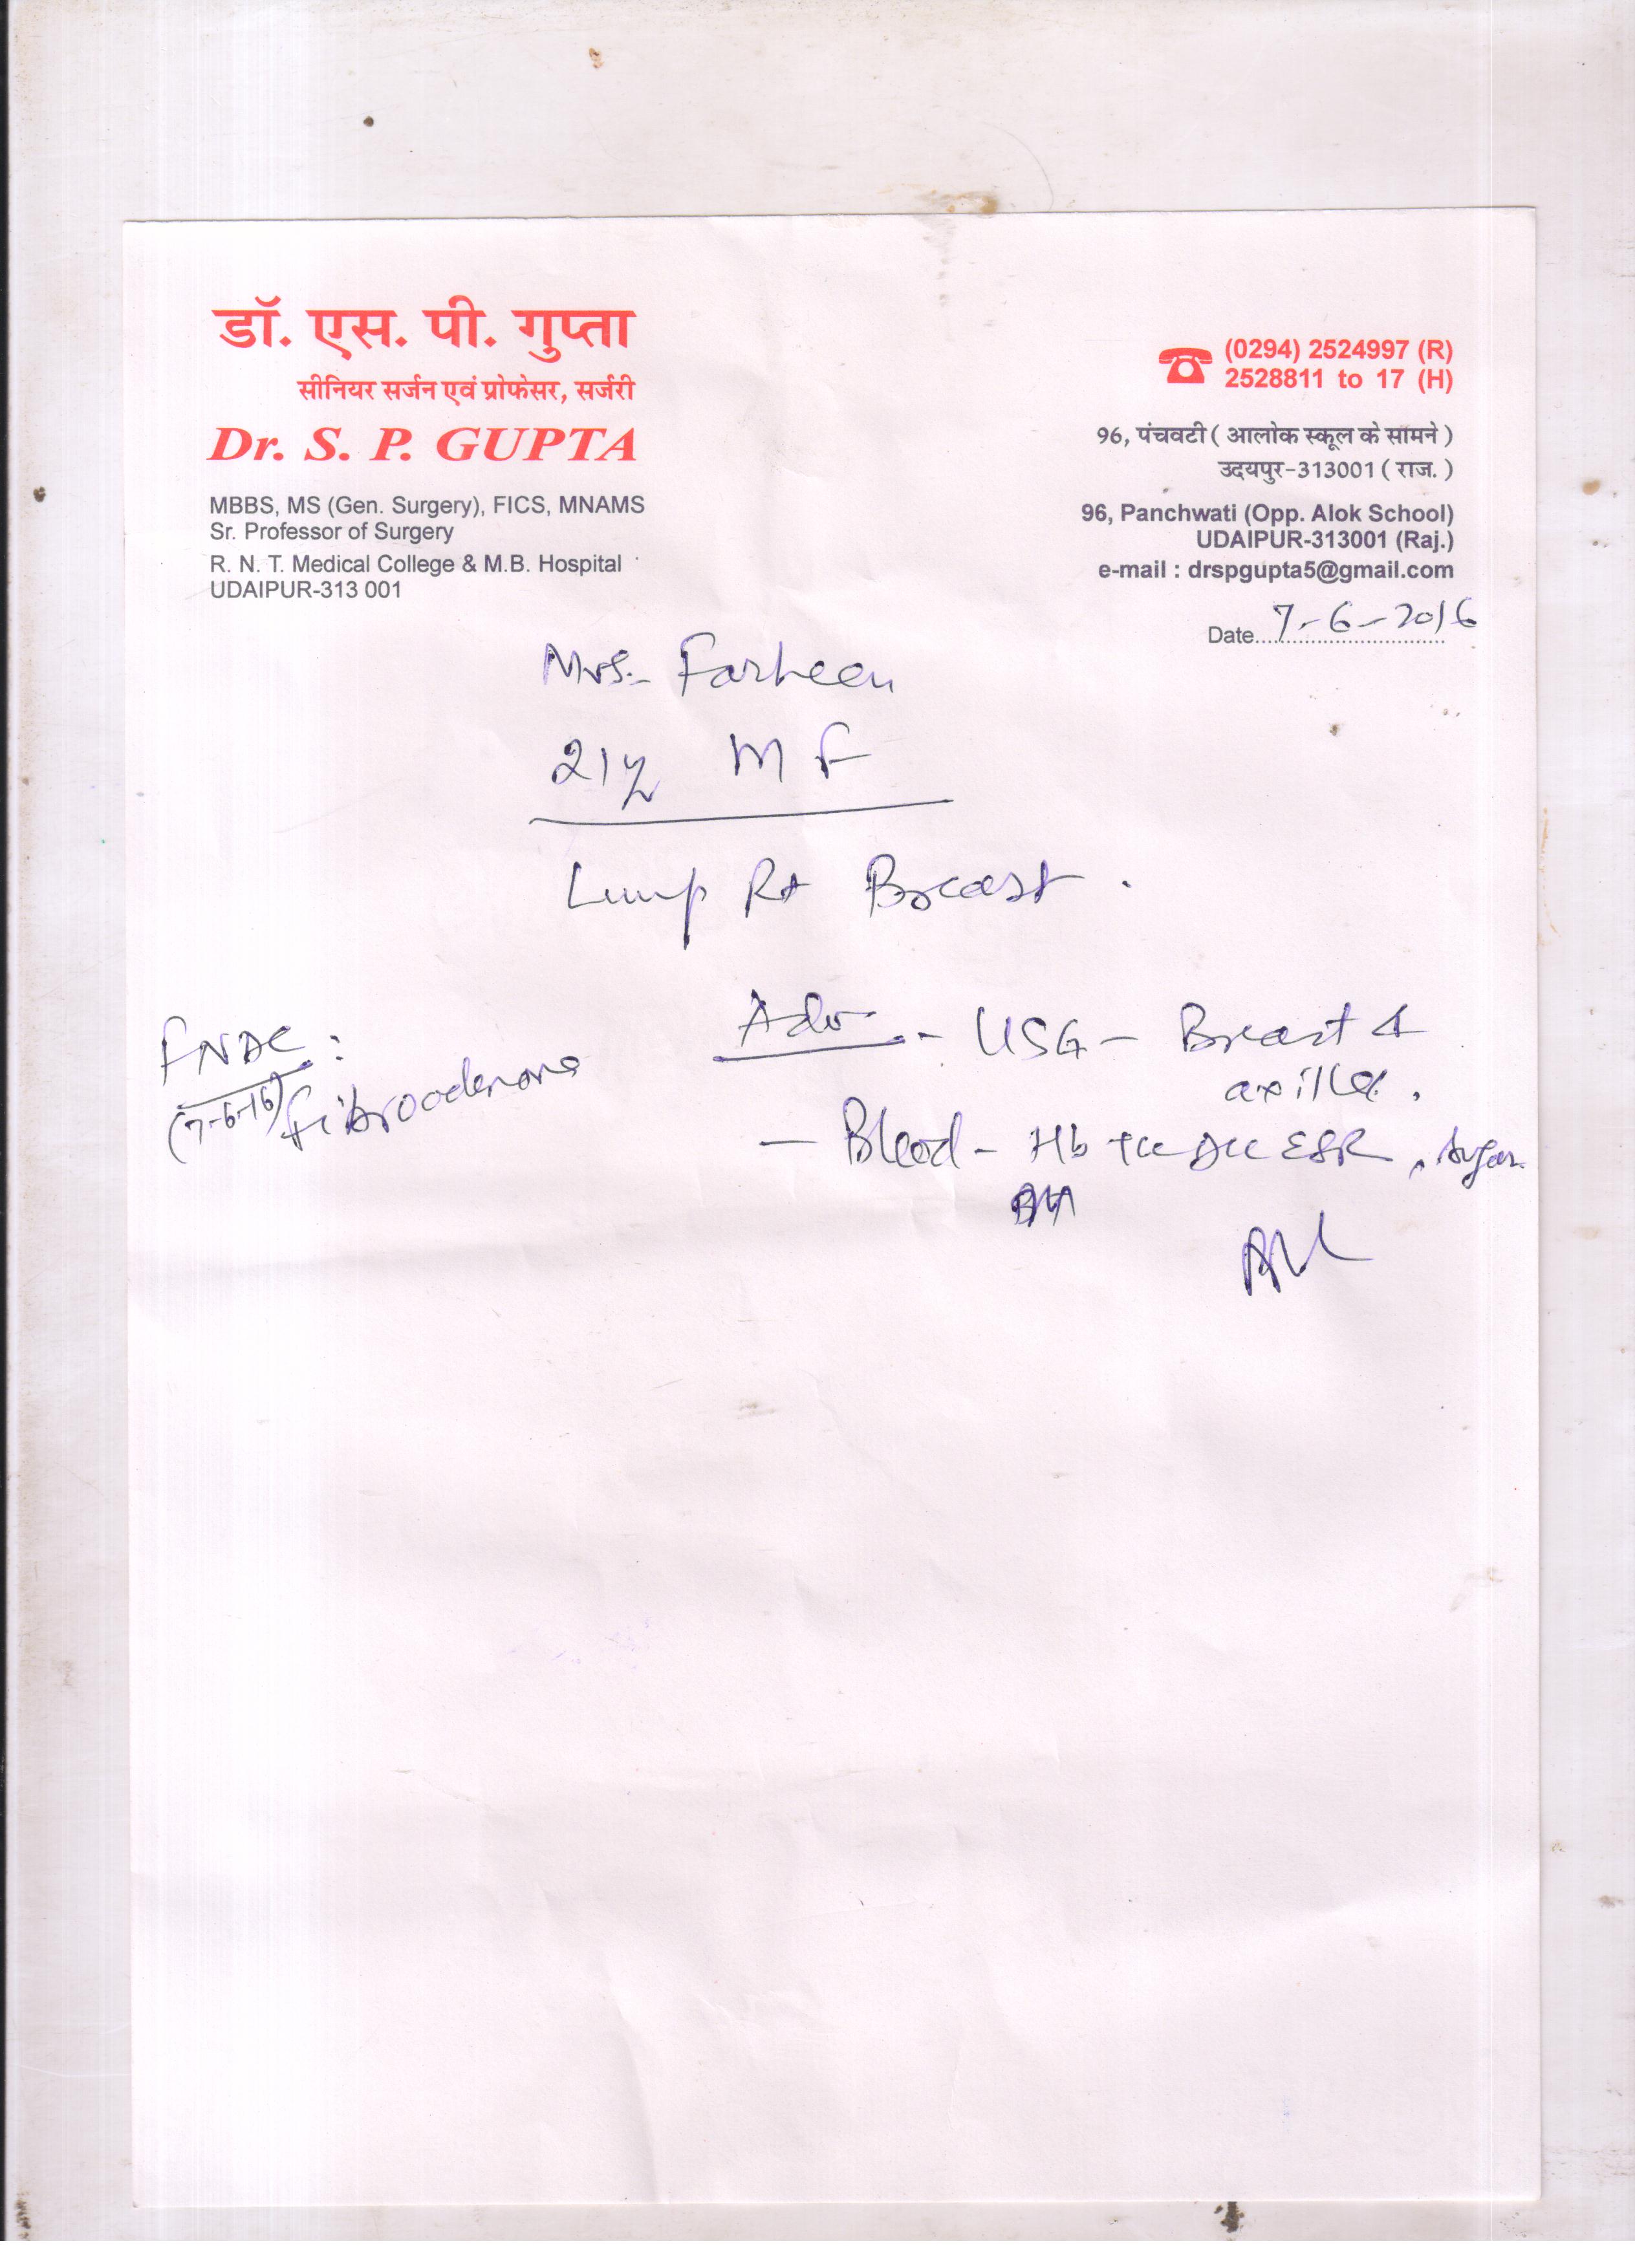 डॉ. एस. पी. गुप्ता
सीनियर सर्जन एवं प्रोफेसर, सर्जरी
Dr. S. P. GUPTA
MBBS, MS (Gen. Surgery), FICS, MNAMS
Sr. Professor of Surgery
R. N. T. Medical College & M.B. Hospital
UDAIPUR-313 001
(0294) 2524997 (R)
2528811 to 17 (H)
96, पंचवटी ( आलोक स्कूल के सामने )
उदयपुर-313001 ( राज. )
96, Panchwati (Opp. Alok School)
UDAIPUR-313001 (Raj.)
e-mail : drspgupta5@gmail.com
Date 7-6-2016
Mrs. Farheen
21y M F
Lump Rt Breast.
FNAC :
(7-6-16) Fibroadenoma
Adv - USG - Breast &
axilla.
- Blood - Hb TLC DLC ESR, Sugar.